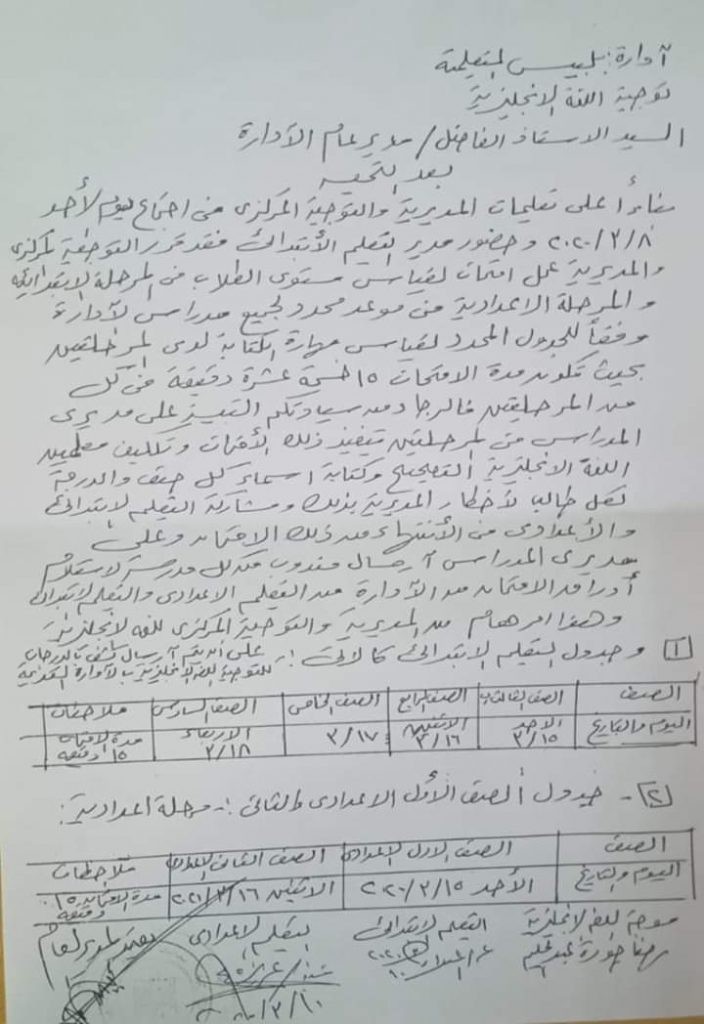 آدارة: بلبيس التعليمية
توجية اللغة الانجليزية
السيد الاستاذ الفاضل/ مدير عام الآدارة
بعد التحية
بناءاً على تعليمات المديرية والتوجية المركزى فى اجتماع يوم الأحد
٢٠٢٠/٣/٨ وحضور مدير التعليم الأبتدائى فقد قرر التوجية المركزى
والمديرية عمل امتحان لقياس مستوى الطلاب فى المرحلة الابتدائية
والمرحلة الاعدادية فى موعد محدد لجميع مدارس الآدارة
وفقاً للجدول المحدد لقياس مهارة الكتابة لدى المرحلتين
بحيث تكون مدة الامتحان ١٥ خمسة عشرة دقيقة فى كل
من المرحلتين فالرجاء من سيادتكم التنبيه على مديرى
المدارس فى المرحلتين تنفيذ ذلك الأمتحان وتكليف معلمين
اللغة الانجليزية التصحيح وكتابة اسماء كل صف والدرجة
لكل طالب لأخطار المديرية بذلك ومشاركة التعليم الابتدائى
والأعدادى فى الأنتهاء من ذلك الامتحان وعلى
مديرى المدارس آرسال مندوب من كل مدرسة لاستلام
أوراق الامتحان من الآدارة من التعليم الاعدادى والتعليم الابتدائى
وهذا امر هام من المديرية والتوجية المركزى للغة الانجليزية
على ان يتم آرسال كشف بالدرجات
[١] وجدول التعليم الابتدائى كالاتى :- للتوجية اللغة الانجليزية بالآدارة التعليمية
الصف الصف الثالث الصف الرابع الصف الخامس الصف السادس ملاحظات
اليوم والتاريخ الاحد ٣/١٥ الاثنين ٣/١٦ ٣/١٧ الاربعاء ٣/١٨ مدة الامتحان ١٥ دقيقة
[٢] - جدول الصف الأول الاعدادى والثانى :- مرحلة اعدادية:
الصف الصف الاول الاعدادى الصف الثانى الاعدادى ملاحظات
اليوم والتاريخ الأحد ٢٠٢٠/٣/١٥ الاثنين ٣/١٦ مدة الامتحان ١٥ دقيقة
موجة اللغة الانجليزية التعليم الابتدائى التعليم الاعدادى يعتمد المدير العام
٣/١٠